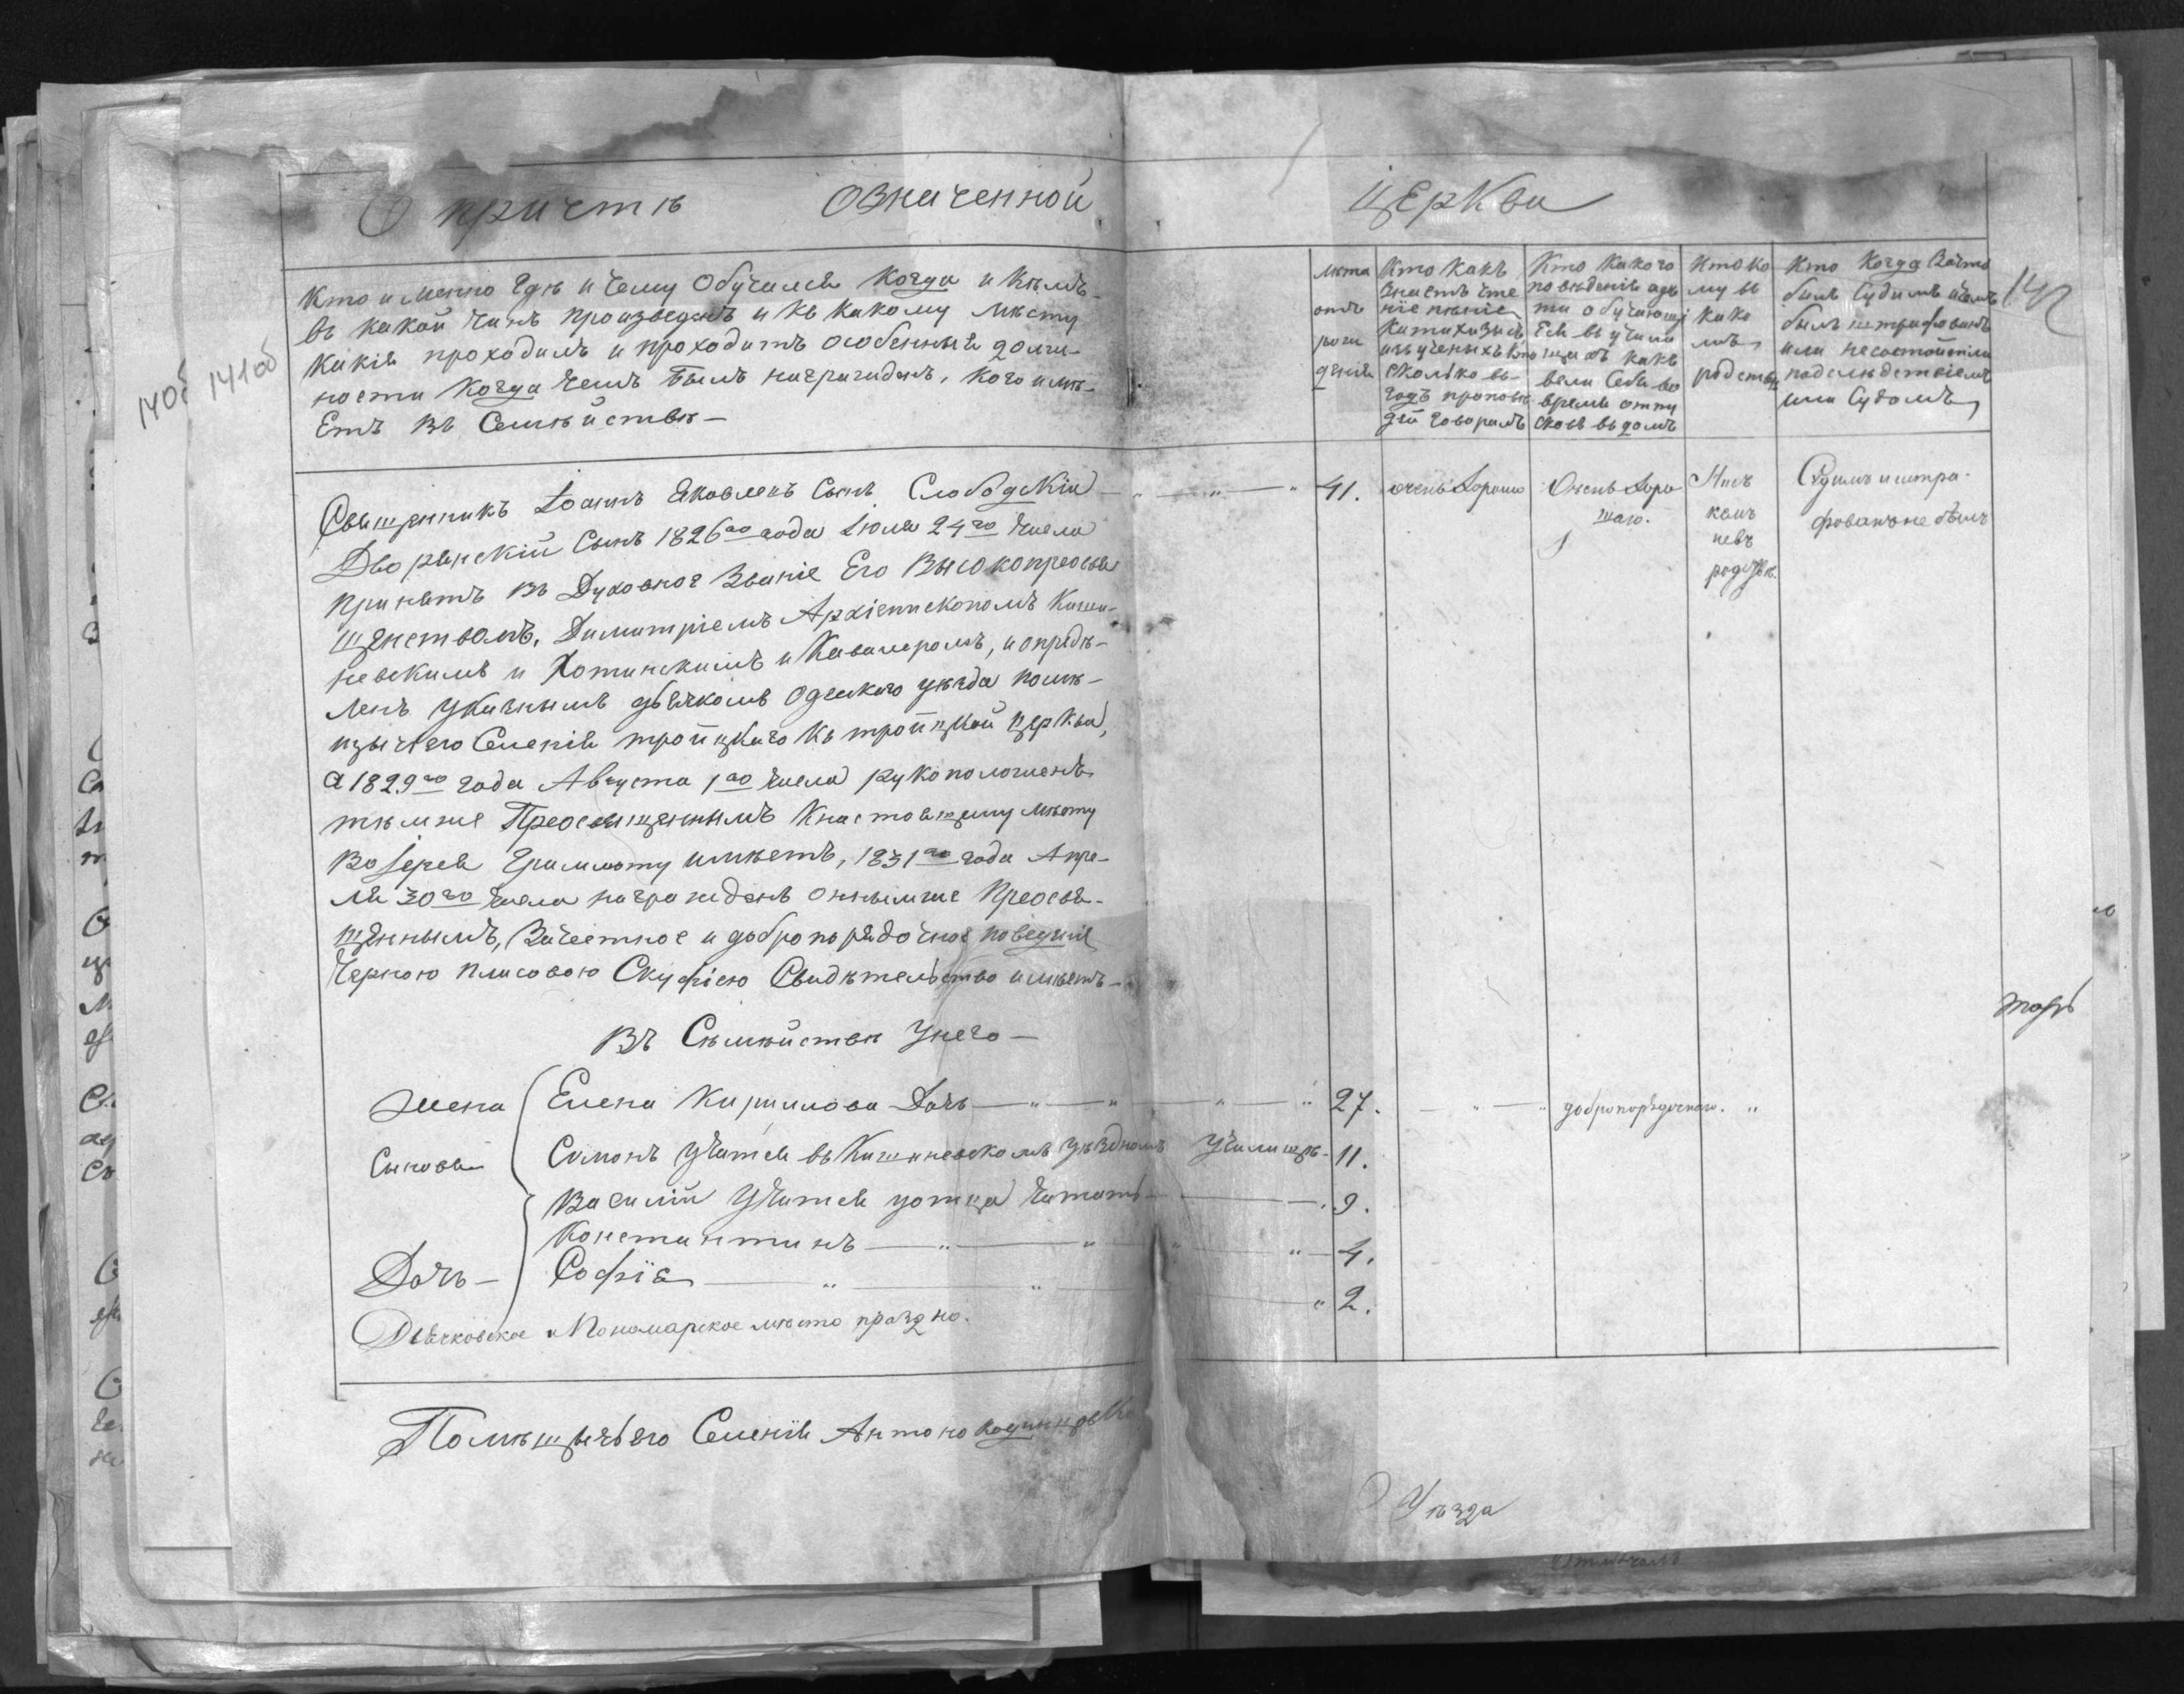 О причтѣ означенной церкви
140б 141об
142
Кто именно гдѣ и чему обучался когда и кѣмъ
въ какой чинъ произведенъ и къ какому мѣсту
какія проходилъ и проходитъ особенныя долж-
ности когда чемъ былъ награжденъ, кого имѣ-
етъ въ Семѣйствѣ —
лѣта
отъ
рож
денія
Кто какъ
знаетъ чте
ніе пѣніе
катихизисъ
изъ ученыхъ кто
сколько въ
годъ проповѣ
дей говорилъ
Кто какого
поведенія дѣ
ти обучающі
еся въ учили
щахъ какъ
вели себя во
время отпу
сковъ въ домъ
Кто ко
му въ
како
мъ
родствѣ
Кто когда зачто
былъ судимъ чемъ
былъ штрафованъ
или несостоитъли
подслѣдствіемъ
или судомъ
Священникъ Іоаннъ Яковлевъ Сынъ Слободскій — 41. очень хорошо Очень хоро
шаго.
Нисъ
кемъ
невъ
родствѣ.
Судимъ и штра-
фованъ не былъ
Дворянскій Сынъ 1826го года Іюля 24го числа
принятъ въ Духовное Званіе Его Высокопреосвя
щенствомъ, Димитріемъ Архіепископомъ Киши-
невскимъ и Хотинскимъ и Кавалеромъ, и опредѣ-
ленъ указнымъ дьячкомъ Одескаго уѣзда помѣ-
щичьяго Селенія тройцкаго къ тройцкой церкви,
а 1829го года Августа 1го числа рукоположенъ
тѣмже Преосвященнымъ к настоящему мѣсту
во Іерея грамоту имѣетъ, 1831го года Апре-
ля 30го числа награжденъ онымже Преосвя-
щеннымъ, за честное и добропорядочное поведеніе
черною плисовою Скуфіею Свидѣтельство имѣетъ —
тогъ
Въ Сѣмѣйствѣ у него —
Жена Елена Кириллова Дочь — 27. добропорядочнаго.
Сыновья Симонъ учится въ Кишиневскомъ уѣздномъ училищѣ — 11.
Василій учится у отца читать — 9.
Константинъ — 4.
Дочь — Софія — 2.
Дьячковское и Пономарское мѣсто праздно.
Помѣщичьяго Селенія Антоно
Уѣзда